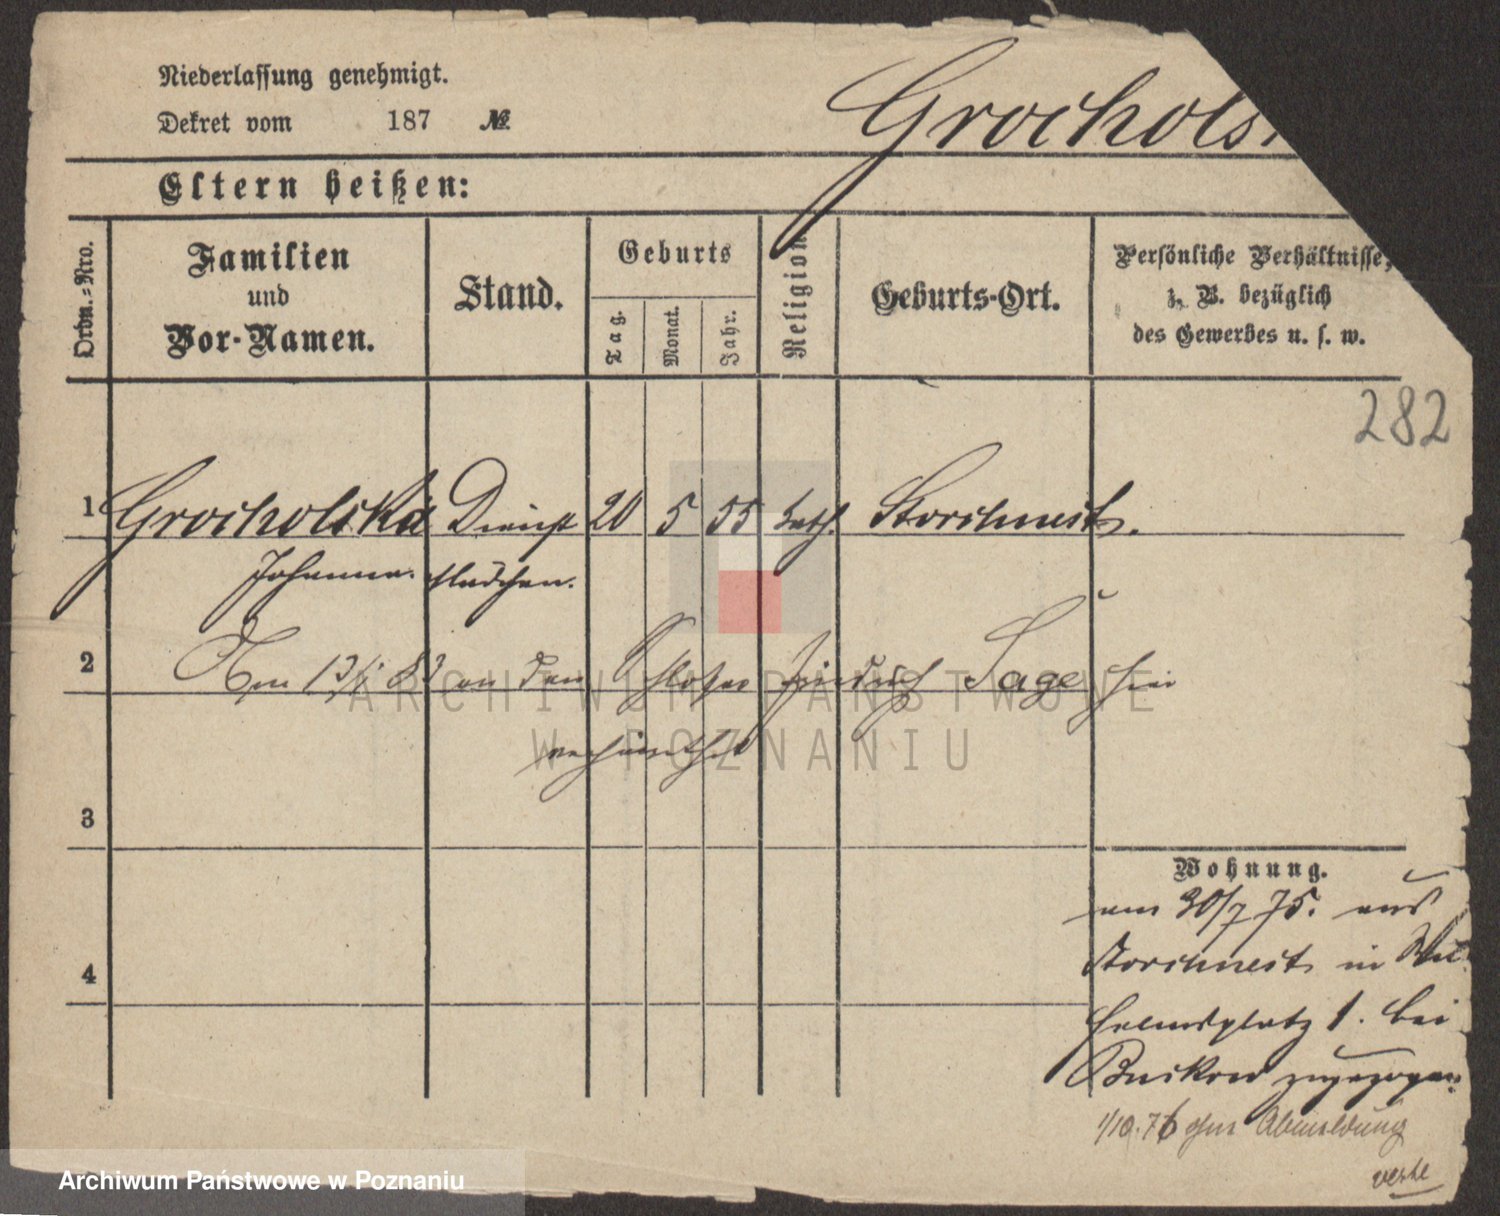 Niederlassung genehmigt.
Dekret vom 187 №
Grochols
Eltern heißen:
Ordn.-Nro.
Familien
und
Vor-Namen.
Stand.
Geburts
Tag.
Monat.
Jahr.
Religion
Geburts-Ort.
Persönliche Verhältnisse,
z. B. bezüglich
des Gewerbes u. s. w.
282
1 Grocholska Dienst 20 5 55 kath. Storchnest.
Johanna. Mädchen.
2 Am 13/1 83 an den Friedrich Sage hier
verheirathet
3
Wohnung.
am 30/7 75. aus
Storchnest in Wil
helmsplatz 1. bei
4
zugezogen.
1/10.76 ohne Abmeldung
ARCHIWUM PAŃSTWOWE
W POZNANIU
Archiwum Państwowe w Poznaniu